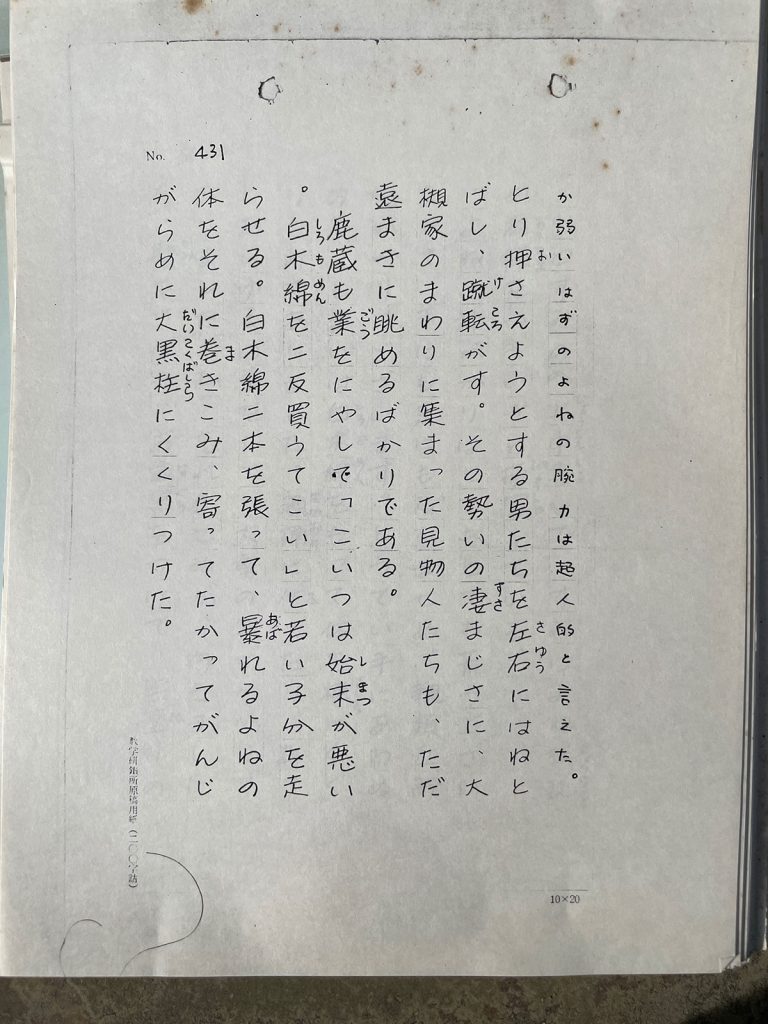 No. 431
か弱いはずのよねの腕力は超人的と言えた。
とり押さえようとする男たちを左右にはねと
ばし、蹴転がす。その勢いの凄まじさに、大
槻家のまわりに集まった見物人たちも、ただ
遠まきに眺めるばかりである。
鹿蔵も業をにやして「こいつは始末が悪い
。白木綿を二反買うてこい」と若い子分を走
らせる。白木綿二本を張って、暴れるよねの
体をそれに巻きこみ、寄ってたかってがんじ
がらめに大黒柱にくくりつけた。
10×20